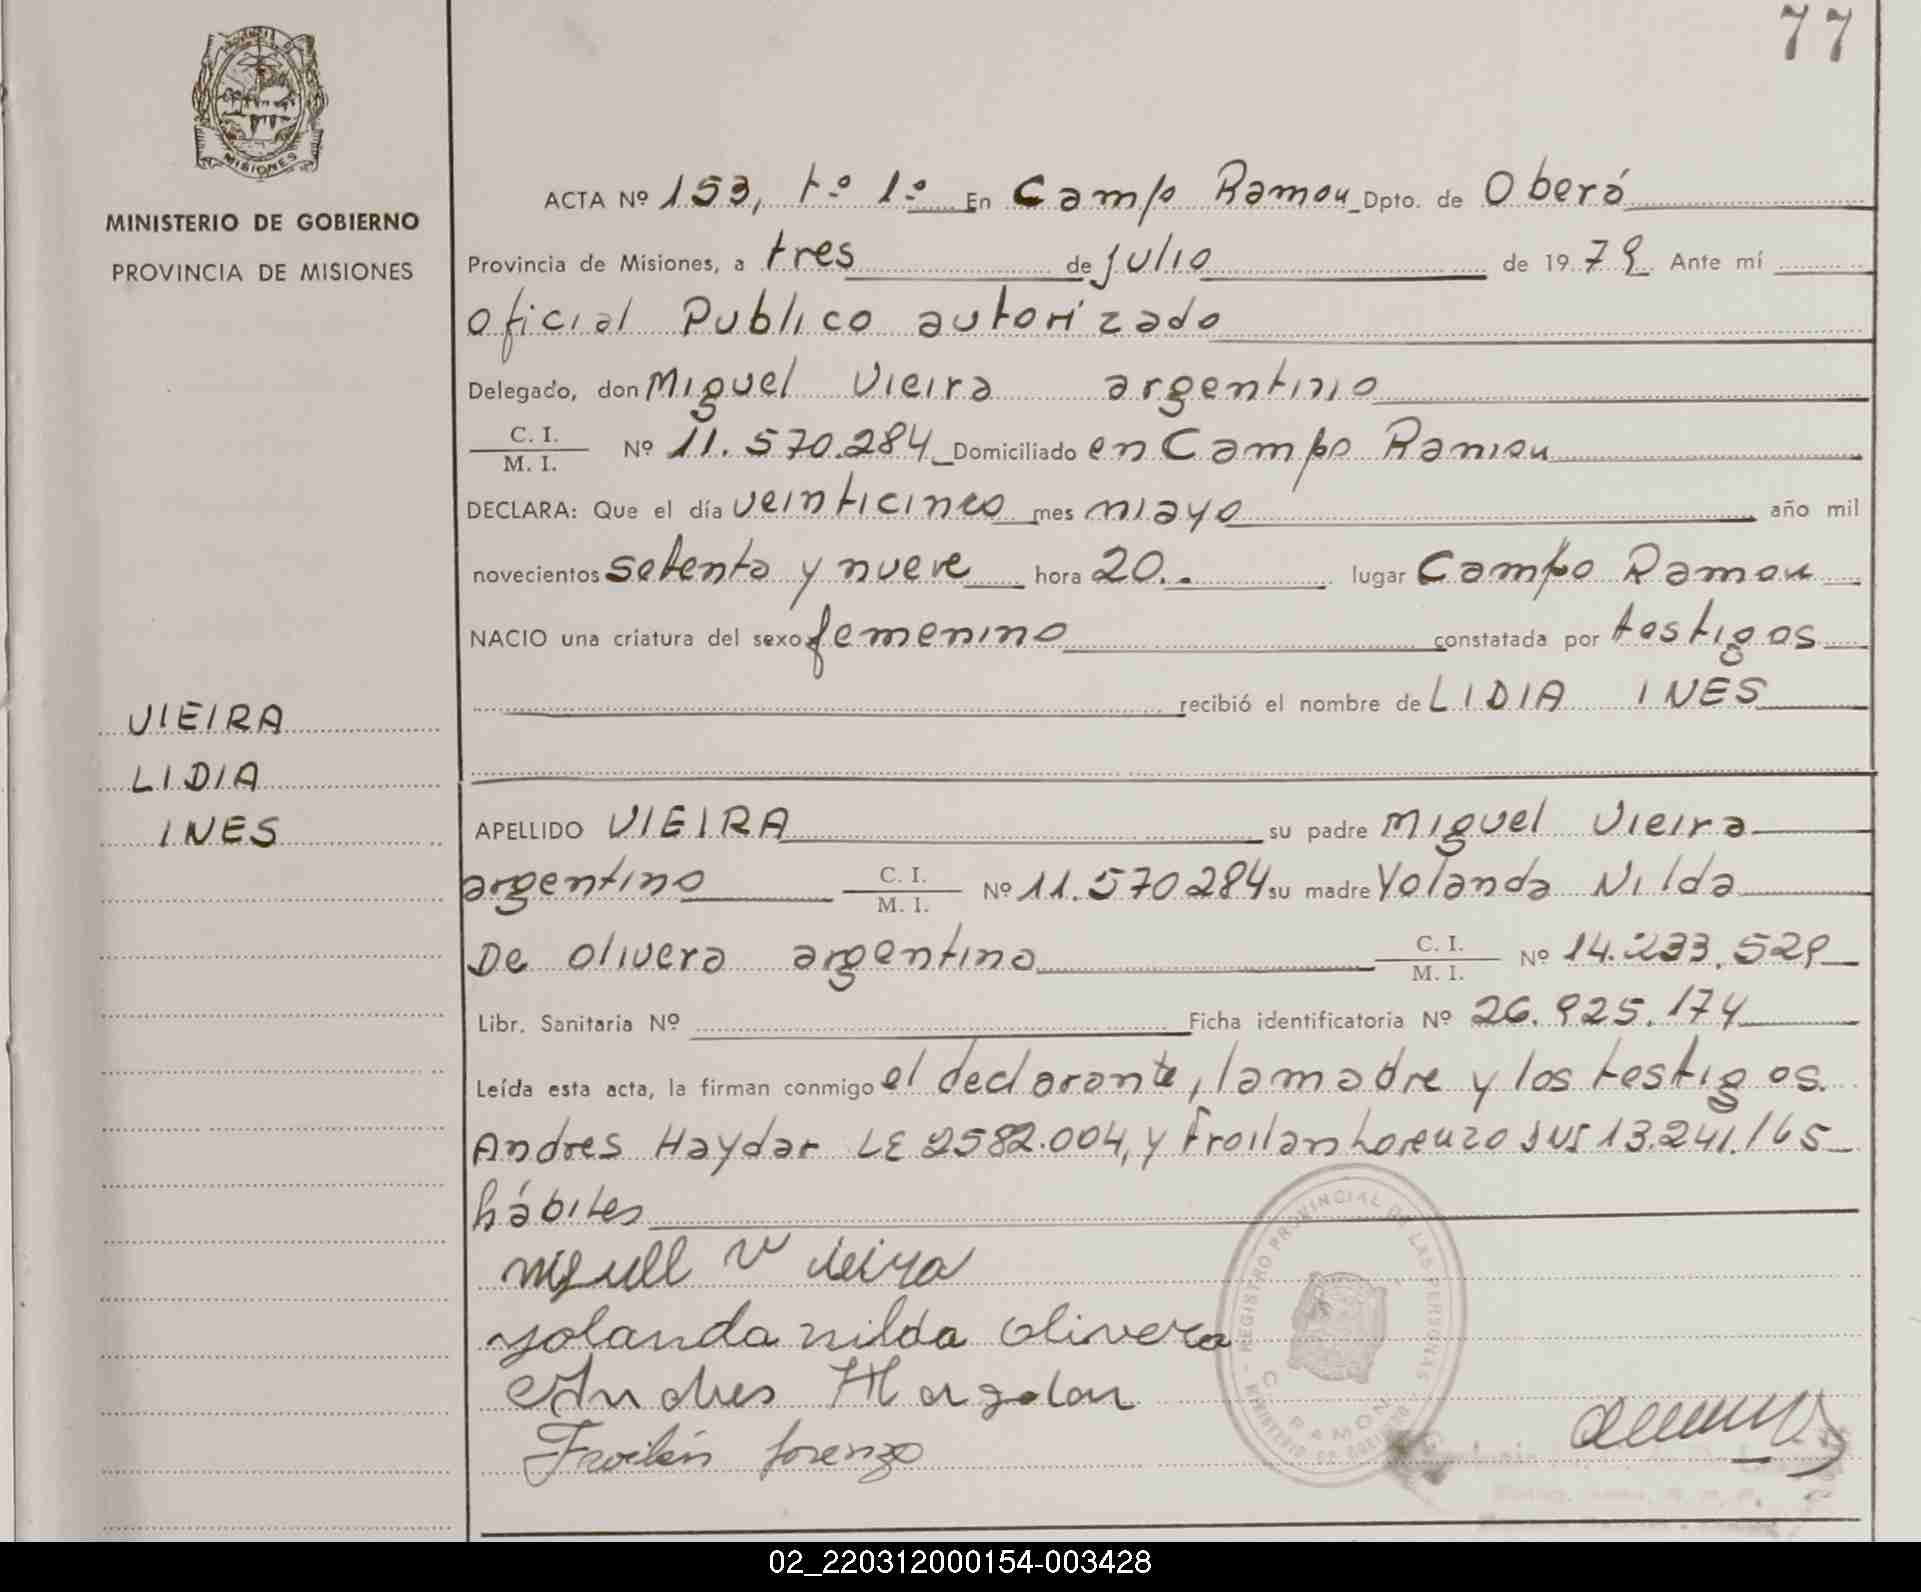 77
PROVINCIA D
MISIONES
MINISTERIO DE GOBIERNO
PROVINCIA DE MISIONES
ACTA Nº 153, tº 1º En Campo Ramon Dpto. de Oberá
Provincia de Misiones, a tres de julio de 1979 Ante mí
Oficial Publico autorizado
Delegado, don Miguel Vieira argentino
C. I.
M. I. Nº 11.570.284 Domiciliado en Campo Ramon
DECLARA: Que el día veinticinco mes mayo año mil
novecientos setenta y nueve hora 20.. lugar Campo Ramon
NACIO una criatura del sexo femenino constatada por testigos
recibió el nombre de LIDIA INES
VIEIRA
LIDIA
INES
APELLIDO VIEIRA su padre Miguel Vieira
argentino C. I. M. I. Nº 11.570284 su madre Yolanda Nilda
De Olivera argentina C. I. M. I. Nº 14.233.529
Libr. Sanitaria Nº Ficha identificatoria Nº 26.925.174
Leída esta acta, la firman conmigo el declarante, la madre y los testigos.
Andres Haydar LE 2582.004, y Froilan Lorenzo DNI 13.241.165
hábiles
Miguel Vieira
yolanda nilda olivera
Andres
Froilán Lorenzo
REGISTRO PROVINCIAL DE LAS PERSONAS
MINISTERIO DE GOBIERNO
C. RAMON
02_220312000154-003428